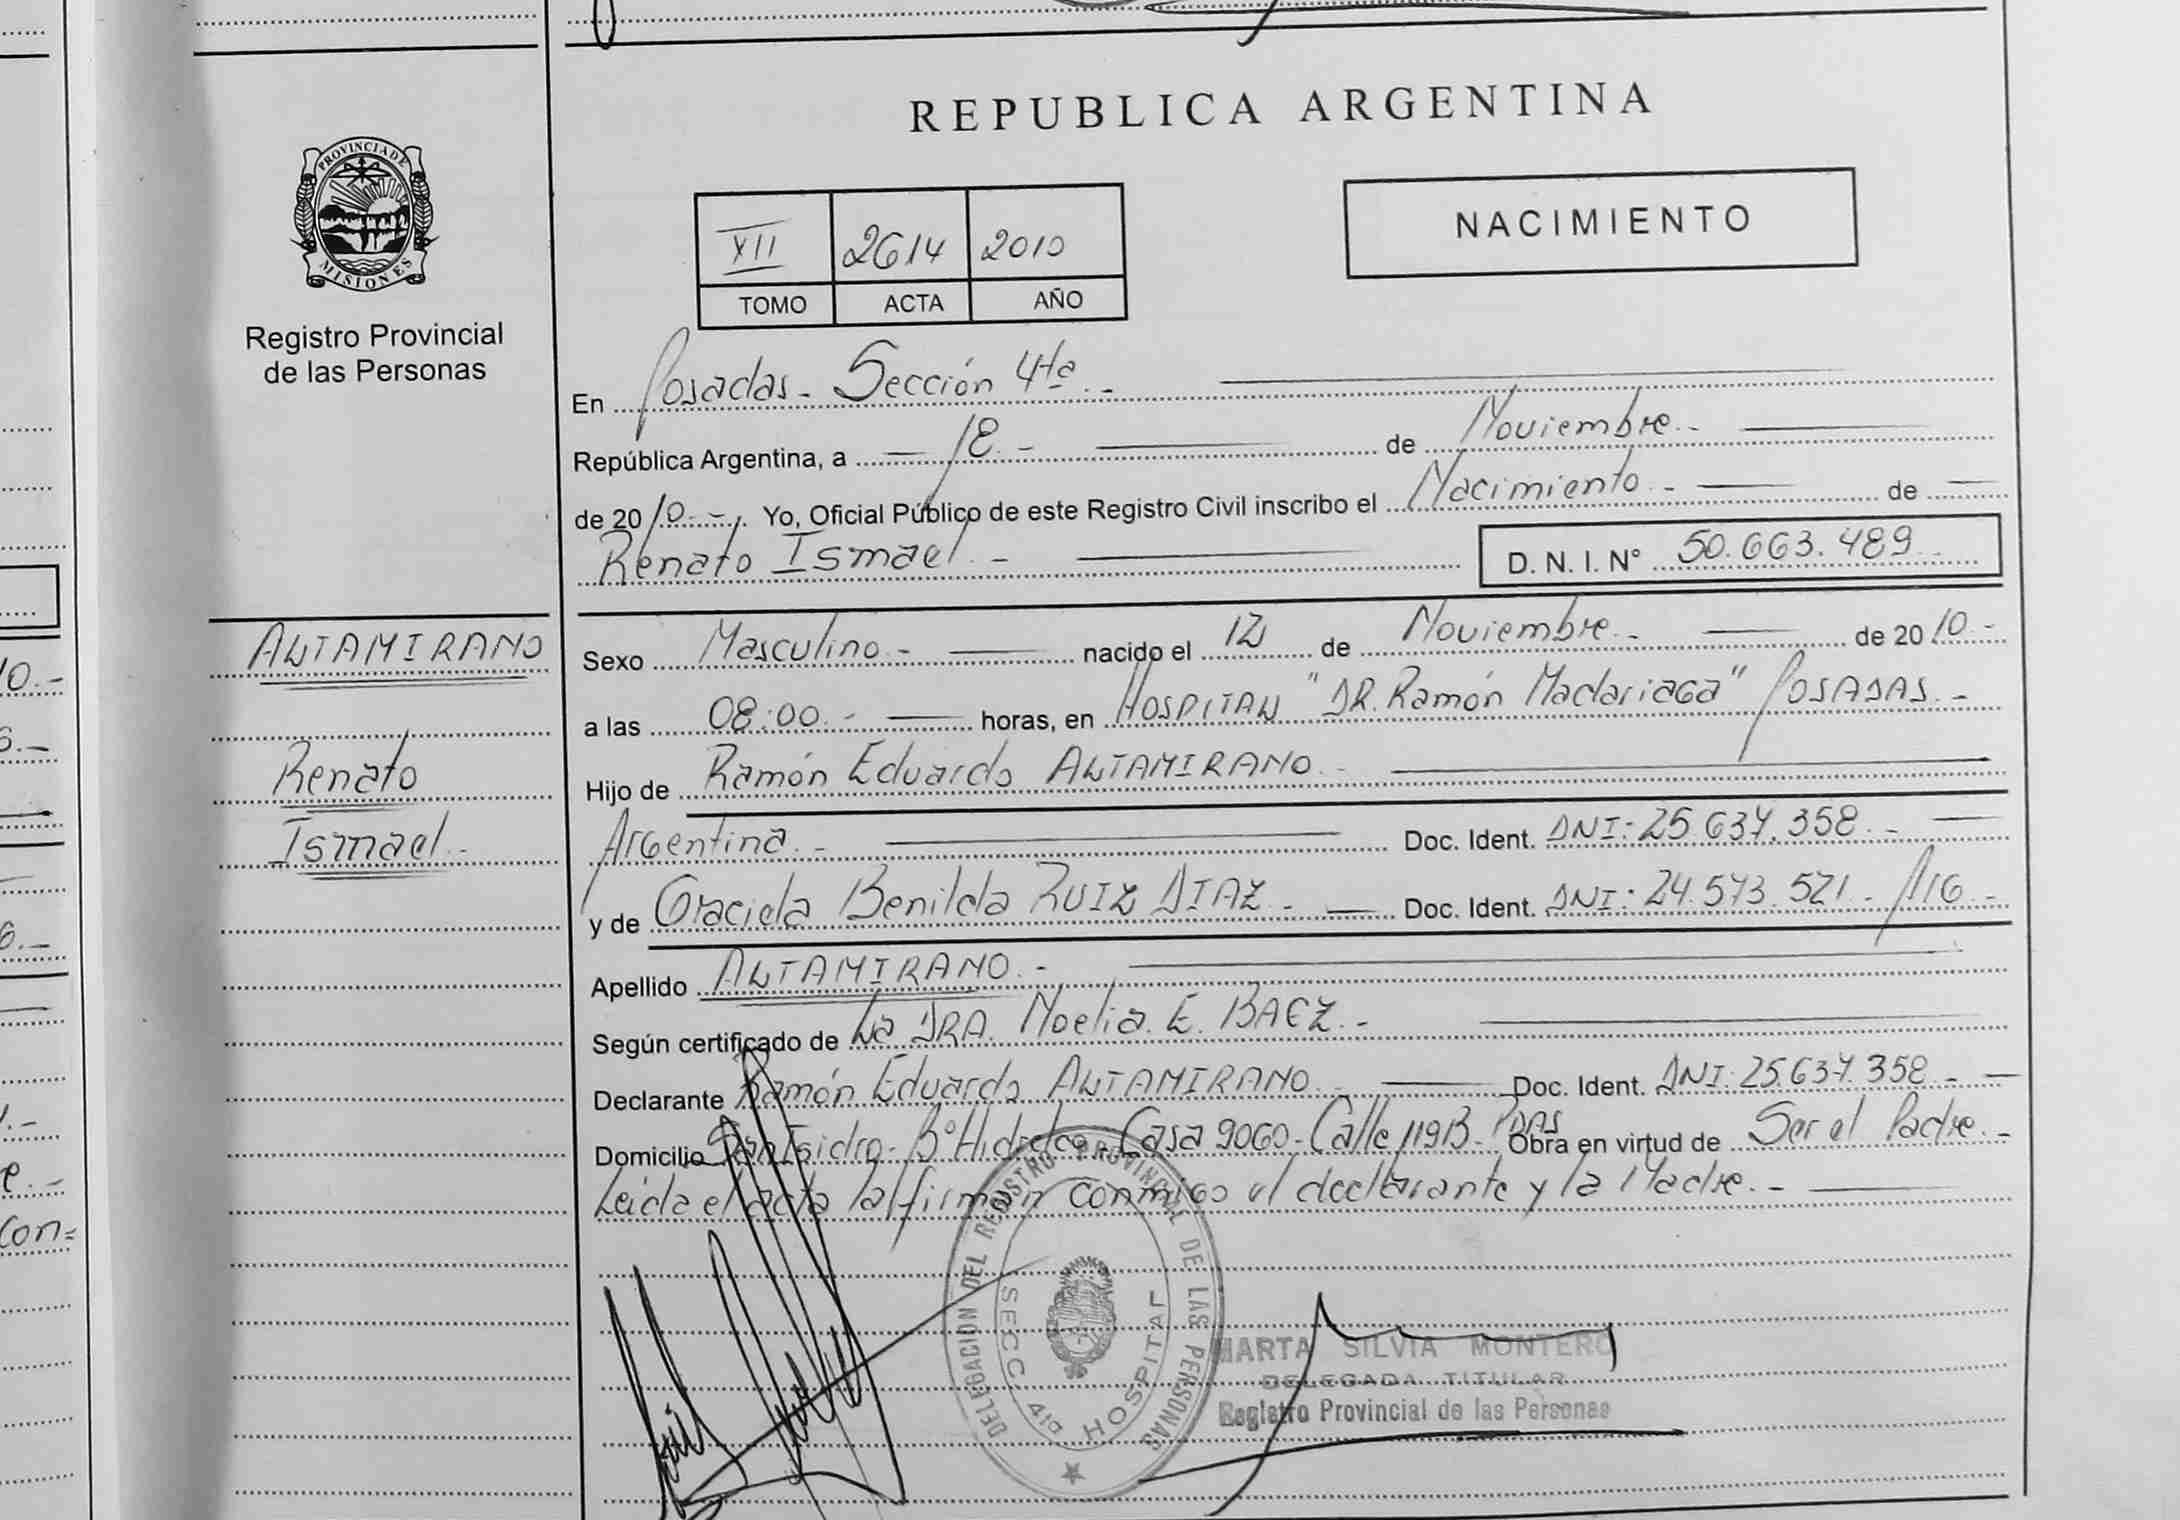 REPUBLICA ARGENTINA
PROVINCIA DE MISIONES
Registro Provincial
de las Personas
NACIMIENTO
XII 2614 2010
TOMO ACTA AÑO
En Posadas - Sección 4ta. -
República Argentina, a 18. - de Noviembre. -
de 2010. - Yo, Oficial Público de este Registro Civil inscribo el Nacimiento. - de
Renato Ismael. -
D. N. I. Nº 50.663.489
ALTAMIRANO
Renato
Ismael. -
Sexo Masculino. - nacido el 12 de Noviembre. - de 2010. -
a las 08:00. - horas, en HOSPITAL "DR. Ramón Madariaga" POSADAS. -
Hijo de Ramón Eduardo ALTAMIRANO. -
Argentina. - Doc. Ident. DNI: 25.637.358. -
y de Graciela Benilda RUIZ DIAZ. - Doc. Ident. DNI: 24.573.521. -
Apellido ALTAMIRANO. -
Según certificado de La DRA. Noelia. E. BAEZ. -
Declarante Ramón Eduardo ALTAMIRANO. - Doc. Ident. DNI: 25.637.358. -
Domicilio San Isidro - Bº Hidrelco - Casa 9060 - Calle 119B - Pdas Obra en virtud de Ser el Padre. -
Leida el acta la firman conmigo el declarante y la Madre. -
DELEGACION DEL REGISTRO PROVINCIAL DE LAS PERSONAS
SECC. 4ta HOSPITAL
MARTA SILVIA MONTERO
DELEGADA TITULAR
Registro Provincial de las Personas
10. -
6. -
con=